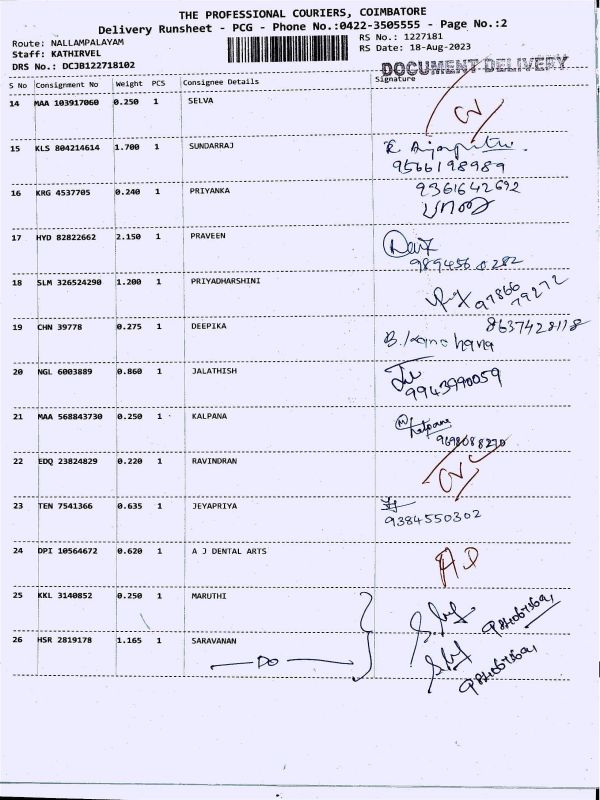 THE PROFESSIONAL COURIERS, COIMBATORE
Delivery Runsheet - PCG - Phone No.:0422-3505555 - Page No.:2
Route: NALLAMPALAYAM
Staff: KATHIRVEL
DRS No.: DCJB122718102
RS No.: 1227181
RS Date: 18-Aug-2023
DOCUMENT DELIVERY
S No Consignment No Weight PCS Consignee Details Signature
14 MAA 103917060 0.250 1 SELVA
15 KLS 804214614 1.700 1 SUNDARRAJ
9566198989
16 KRG 4537705 0.240 1 PRIYANKA 9361642692
17 HYD 82822662 2.150 1 PRAVEEN
18 SLM 326524290 1.200 1 PRIYADHARSHINI 97866
79272
19 CHN 39778 0.275 1 DEEPIKA 8637428118
B. Kanchana
20 NGL 6003889 0.860 1 JALATHISH
9943990059
21 MAA 568843730 0.250 1 KALPANA kalpana
9698088270
22 EDQ 23824829 0.220 1 RAVINDRAN
23 TEN 7541366 0.635 1 JEYAPRIYA
9384550302
24 DPI 10564672 0.620 1 A J DENTAL ARTS
25 KKL 3140852 0.250 1 MARUTHI
26 HSR 2819178 1.165 1 SARAVANAN
DO